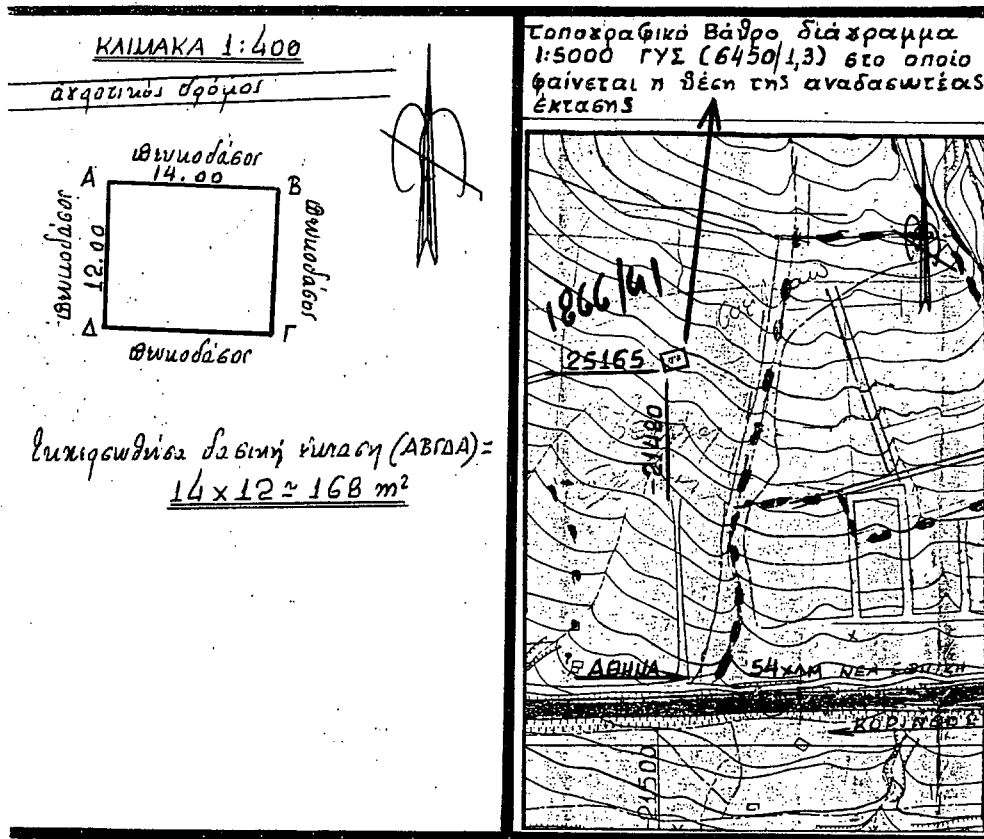 ΚΛΙΜΑΚΑ 1:400
αγροτικός δρόμος
πευκοδάσος
14.00
Α
Β
πευκοδάσος
12.00
πευκοδάσος
Δ
Γ
πευκοδάσος
Εκχερσωθείσα δασική έκταση (ΑΒΓΔΑ)=
14 x 12 = 168 m²
τοπογραφικό Βάθρο διάγραμμα
1:5000 ΓΥΣ (6450/1,3) στο οποίο
φαίνεται η θέση της αναδασωτέας
έκτασης
25165
-21490
ΑΘΗΝΑ
54 ΧΛΜ ΝΕΑ
ΚΟΡΙΝΘΟΣ
21500